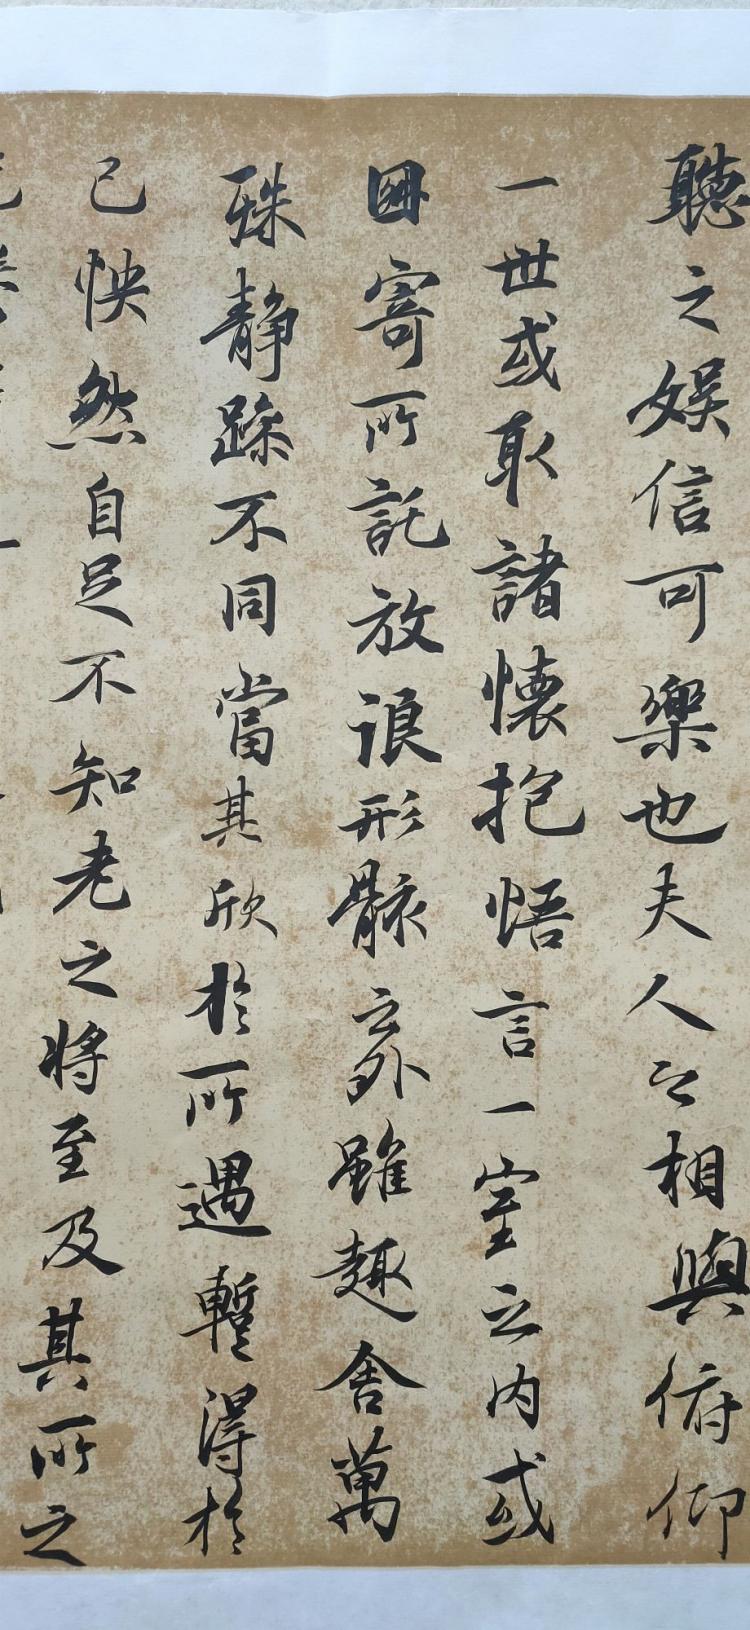 聽之娛信可樂也夫人之相與俯仰
一世或取諸懷抱悟言一室之内或
因寄所託放浪形骸之外雖趣舍萬
殊靜躁不同當其欣於所遇暫得於
己怏然自足不知老之將至及其所之